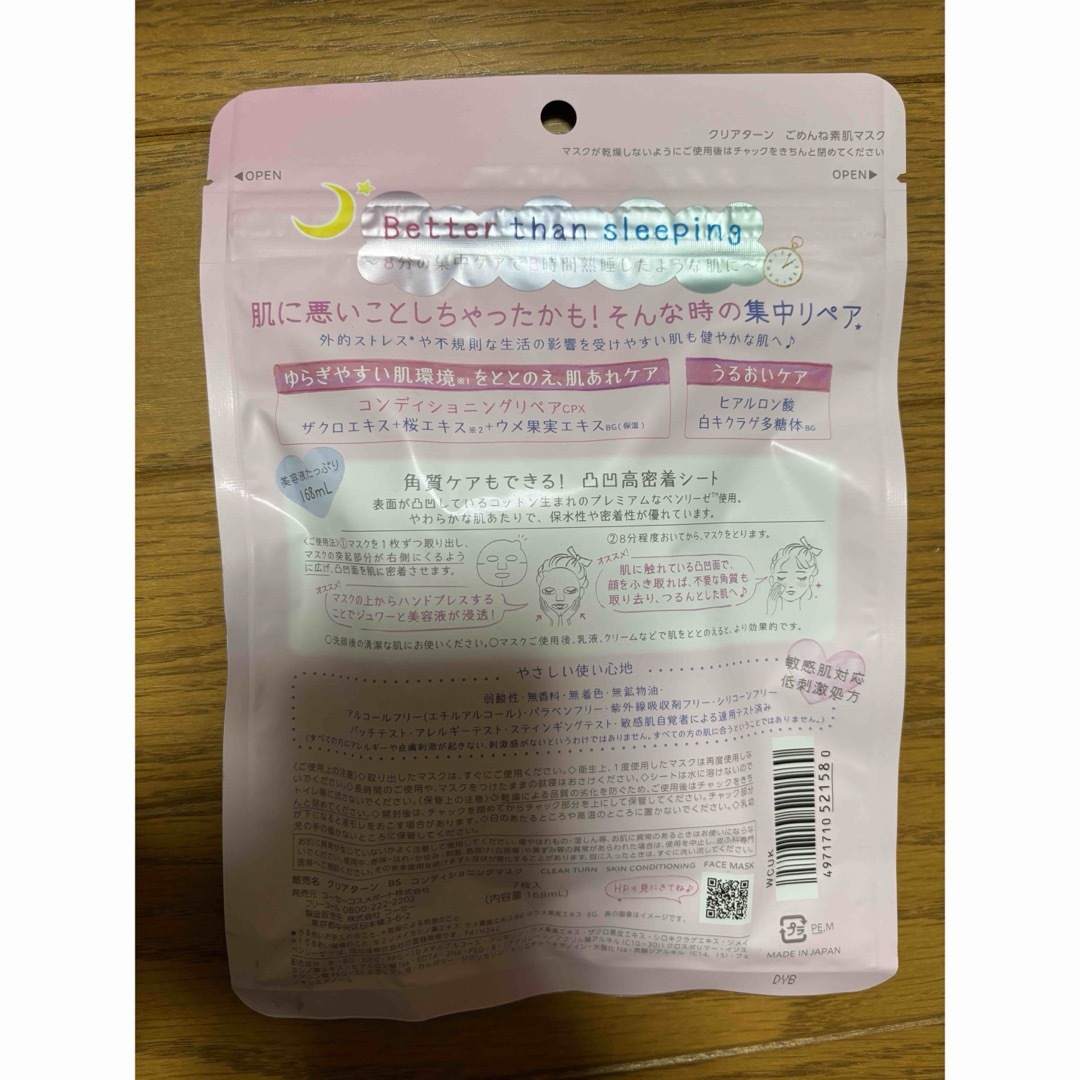 クリアターン ごめんね素肌マスク
マスクが乾燥しないようにご使用後はチャックをきちんと閉めてください
◀OPEN
OPEN▶
Better than sleeping
〜8分の集中ケアで8時間熟睡したような肌に〜
肌に悪いことしちゃったかも!そんな時の集中リペア
外的ストレス*や不規則な生活の影響を受けやすい肌も健やかな肌へ♪
ゆらぎやすい肌環境※1をととのえ、肌あれケア
コンディショニングリペアCPX
ザクロエキス+桜エキス※2+ウメ果実エキスBG(保湿)
うるおいケア
ヒアルロン酸
白キクラゲ多糖体BG
美容液たっぷり
168mL
角質ケアもできる! 凸凹高密着シート
表面が凸凹しているコットン生まれのプレミアムなベンリーゼ™使用。
やわらかな肌あたりで、保水性や密着性が優れています。
〈ご使用法〉①マスクを1枚ずつ取り出し、
マスクの突起部分が右側にくるよう
に広げ、凸凹面を肌に密着させます。
オススメ!
マスクの上からハンドプレスする
ことでジュワーと美容液が浸透!
②8分程度おいてから、マスクをとります。
オススメ!
肌に触れている凸凹面で、
顔をふき取れば、不要な角質も
取り去り、つるんとした肌へ♪
○洗顔後の清潔な肌にお使いください。○マスクご使用後、乳液、クリームなどで肌をととのえると、より効果的です。
やさしい使い心地
敏感肌対応
低刺激処方
弱酸性・無香料・無着色・無鉱物油・
アルコールフリー(エチルアルコール)・パラベンフリー・紫外線吸収剤フリー・シリコーンフリー
パッチテスト・アレルギーテスト・スティンギングテスト・敏感肌自覚者による連用テスト済み
(すべての方にアレルギーや皮膚刺激が起きない、刺激感がないというわけではありません。すべての方の肌に合うということではありません。)
〈ご使用上の注意〉◇取り出したマスクは、すぐにご使用ください。◇衛生上、1度使用したマスクは再度使用しな
いでください。◇長時間のご使用や、マスクをつけたままの就寝はおさけください。◇シートは水に溶けないので
トイレ等に流さないでください。〈保管上の注意〉◇乾燥による品質の劣化を防ぐため、ご使用後はチャックをきち
んと閉めてください。◇開封後は、チャックを閉めてからチャック部分を上にして保管してください。チャック部分
が下になると液モレをおこす場合があります。◇日のあたるところや高温のところに置かないでください。◇乳幼
児の手の届かないところに保管してください。
販売名 クリアターン BS コンディショニングマスク
CLEAR TURN SKIN CONDITIONING FACE MASK
7枚入
(内容量 168mL)
発売元 コーセーコスメポート株式会社
フリーコール 0800-222-2202
製造販売元 株式会社 コーセー
東京都中央区日本橋3-6-2
HPも見にきてね♪
WGUK
4971710521580
プラ
PE,M
MADE IN JAPAN
DYB